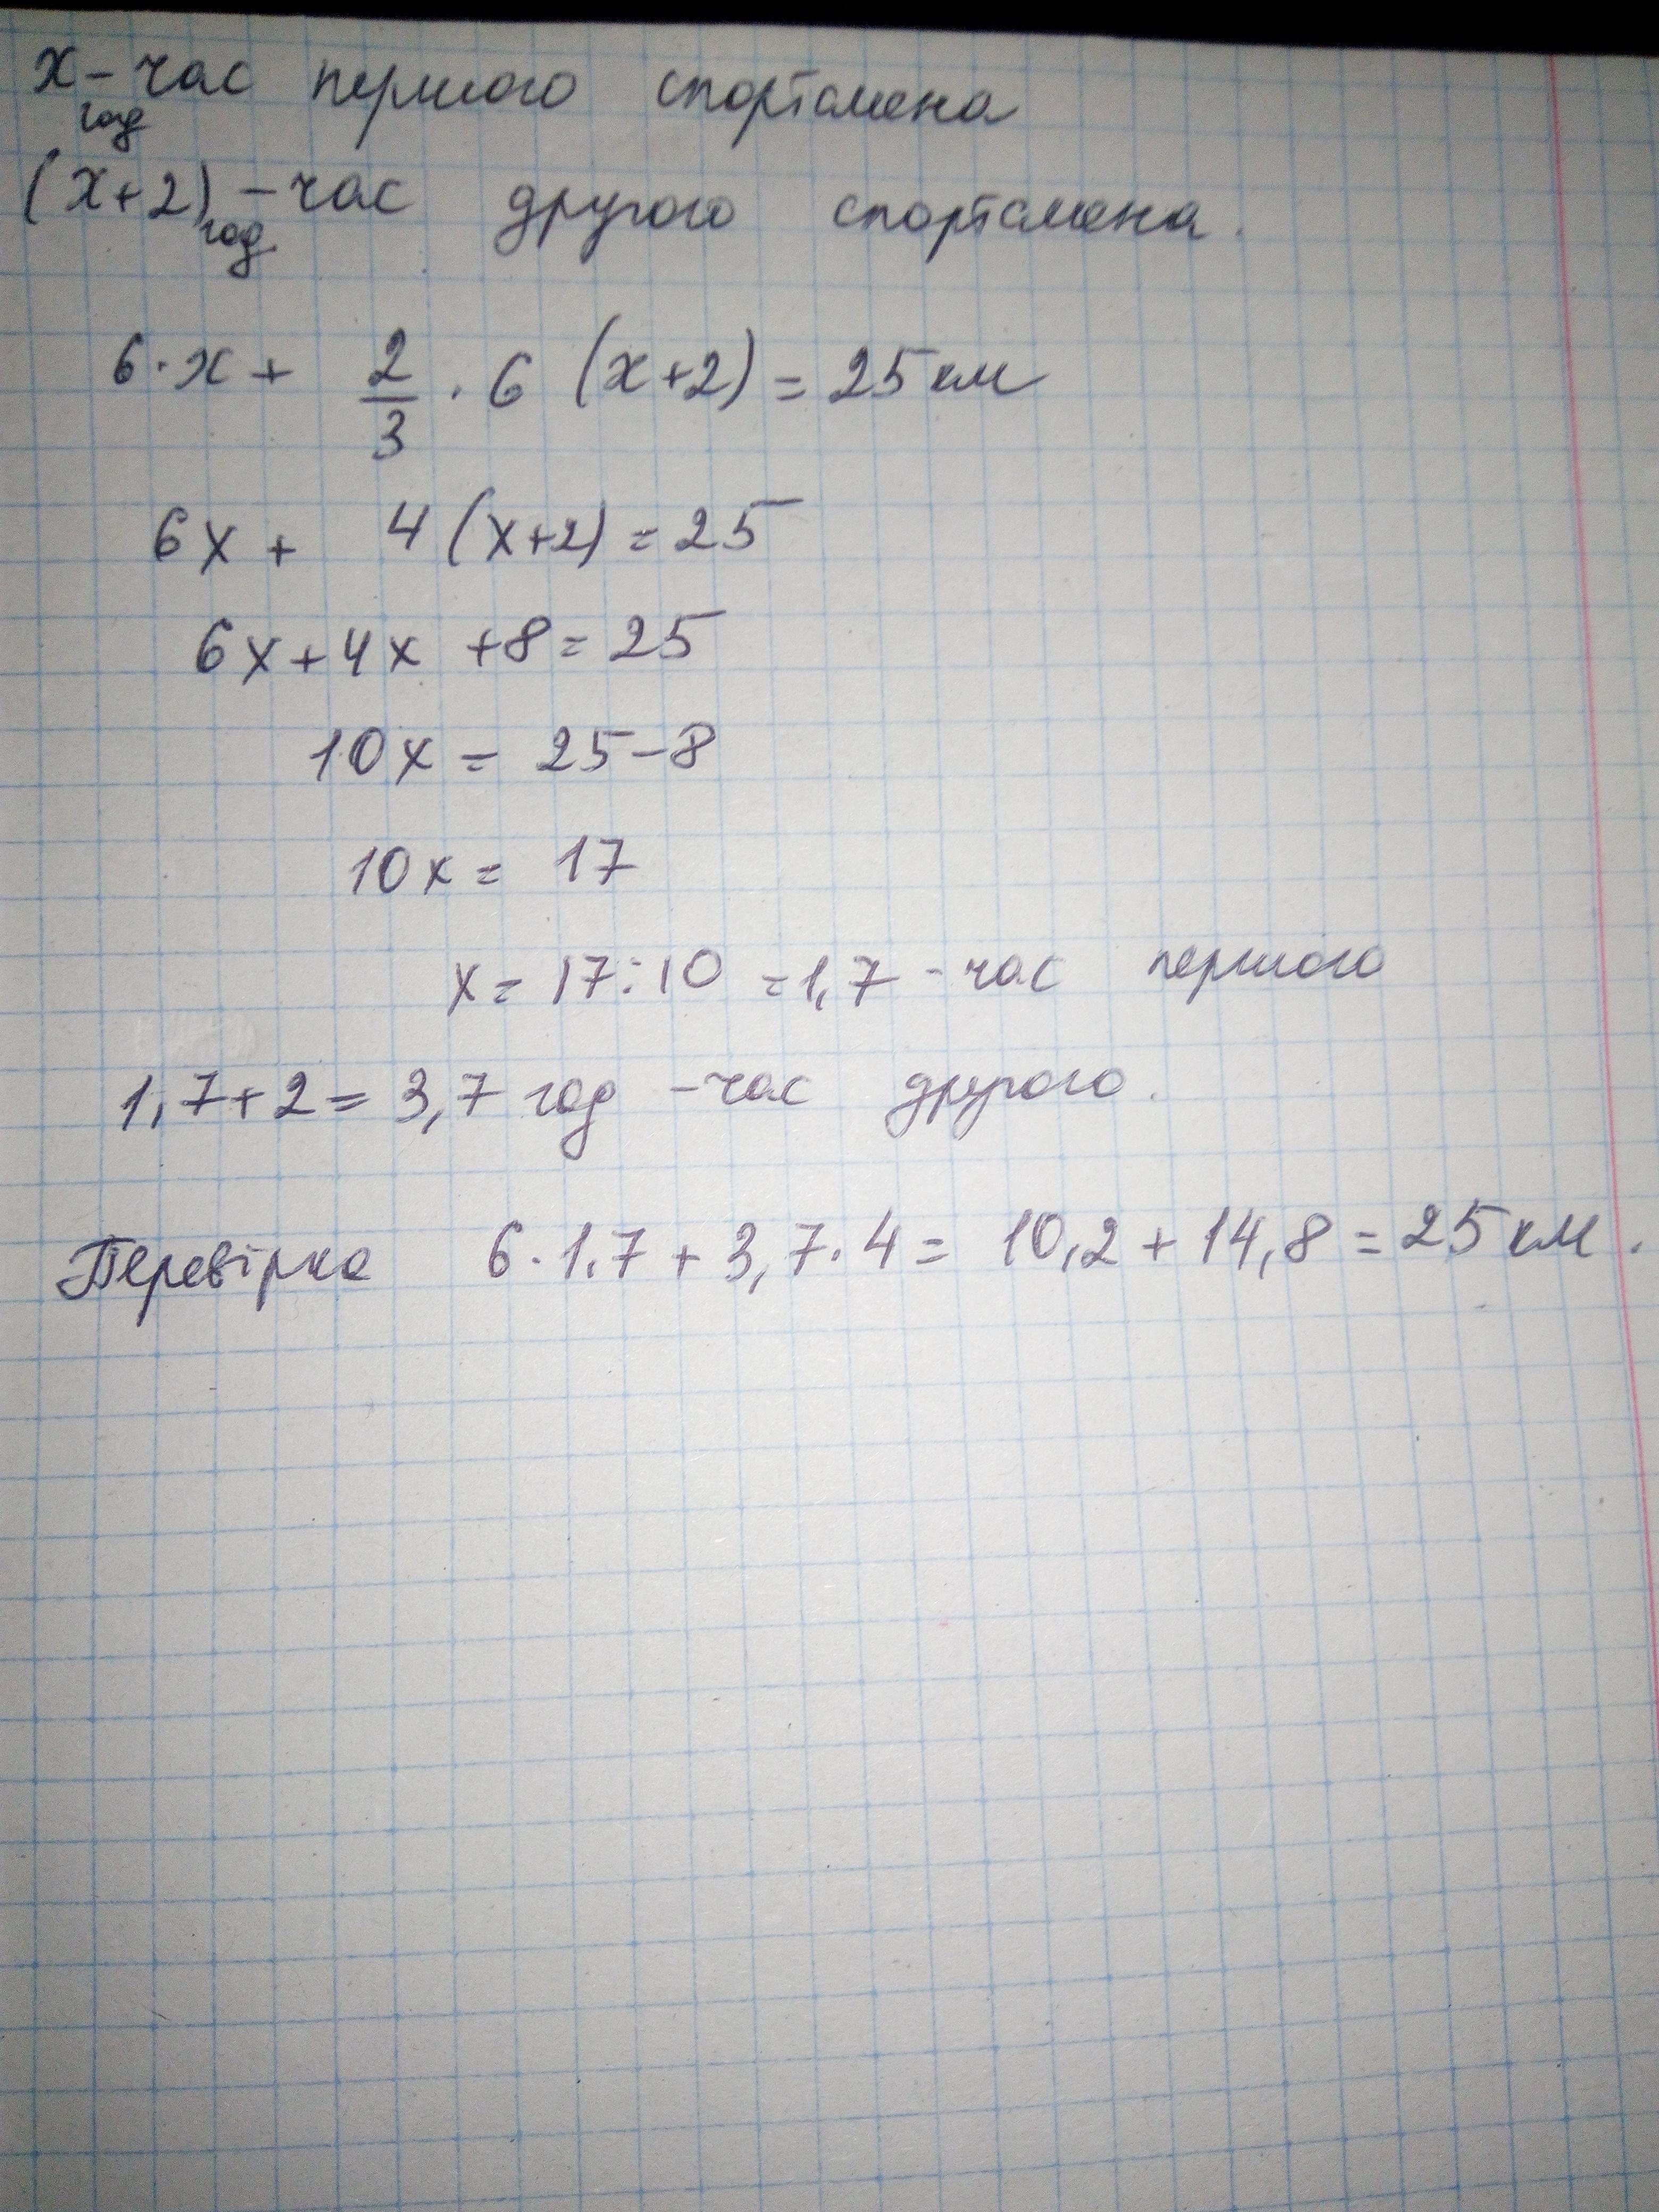 х - час першого спортсмена
год
(х+2) - час другого спортсмена.
год
6·х + 2/3 · 6 (х+2) = 25 км
6х + 4(х+2) = 25
6х+4х +8 = 25
10х = 25-8
10х = 17
х = 17:10 = 1,7 - час першого
1,7+2 = 3,7 год - час другого.
Перевірка 6·1,7 + 3,7·4 = 10,2 + 14,8 = 25 км.